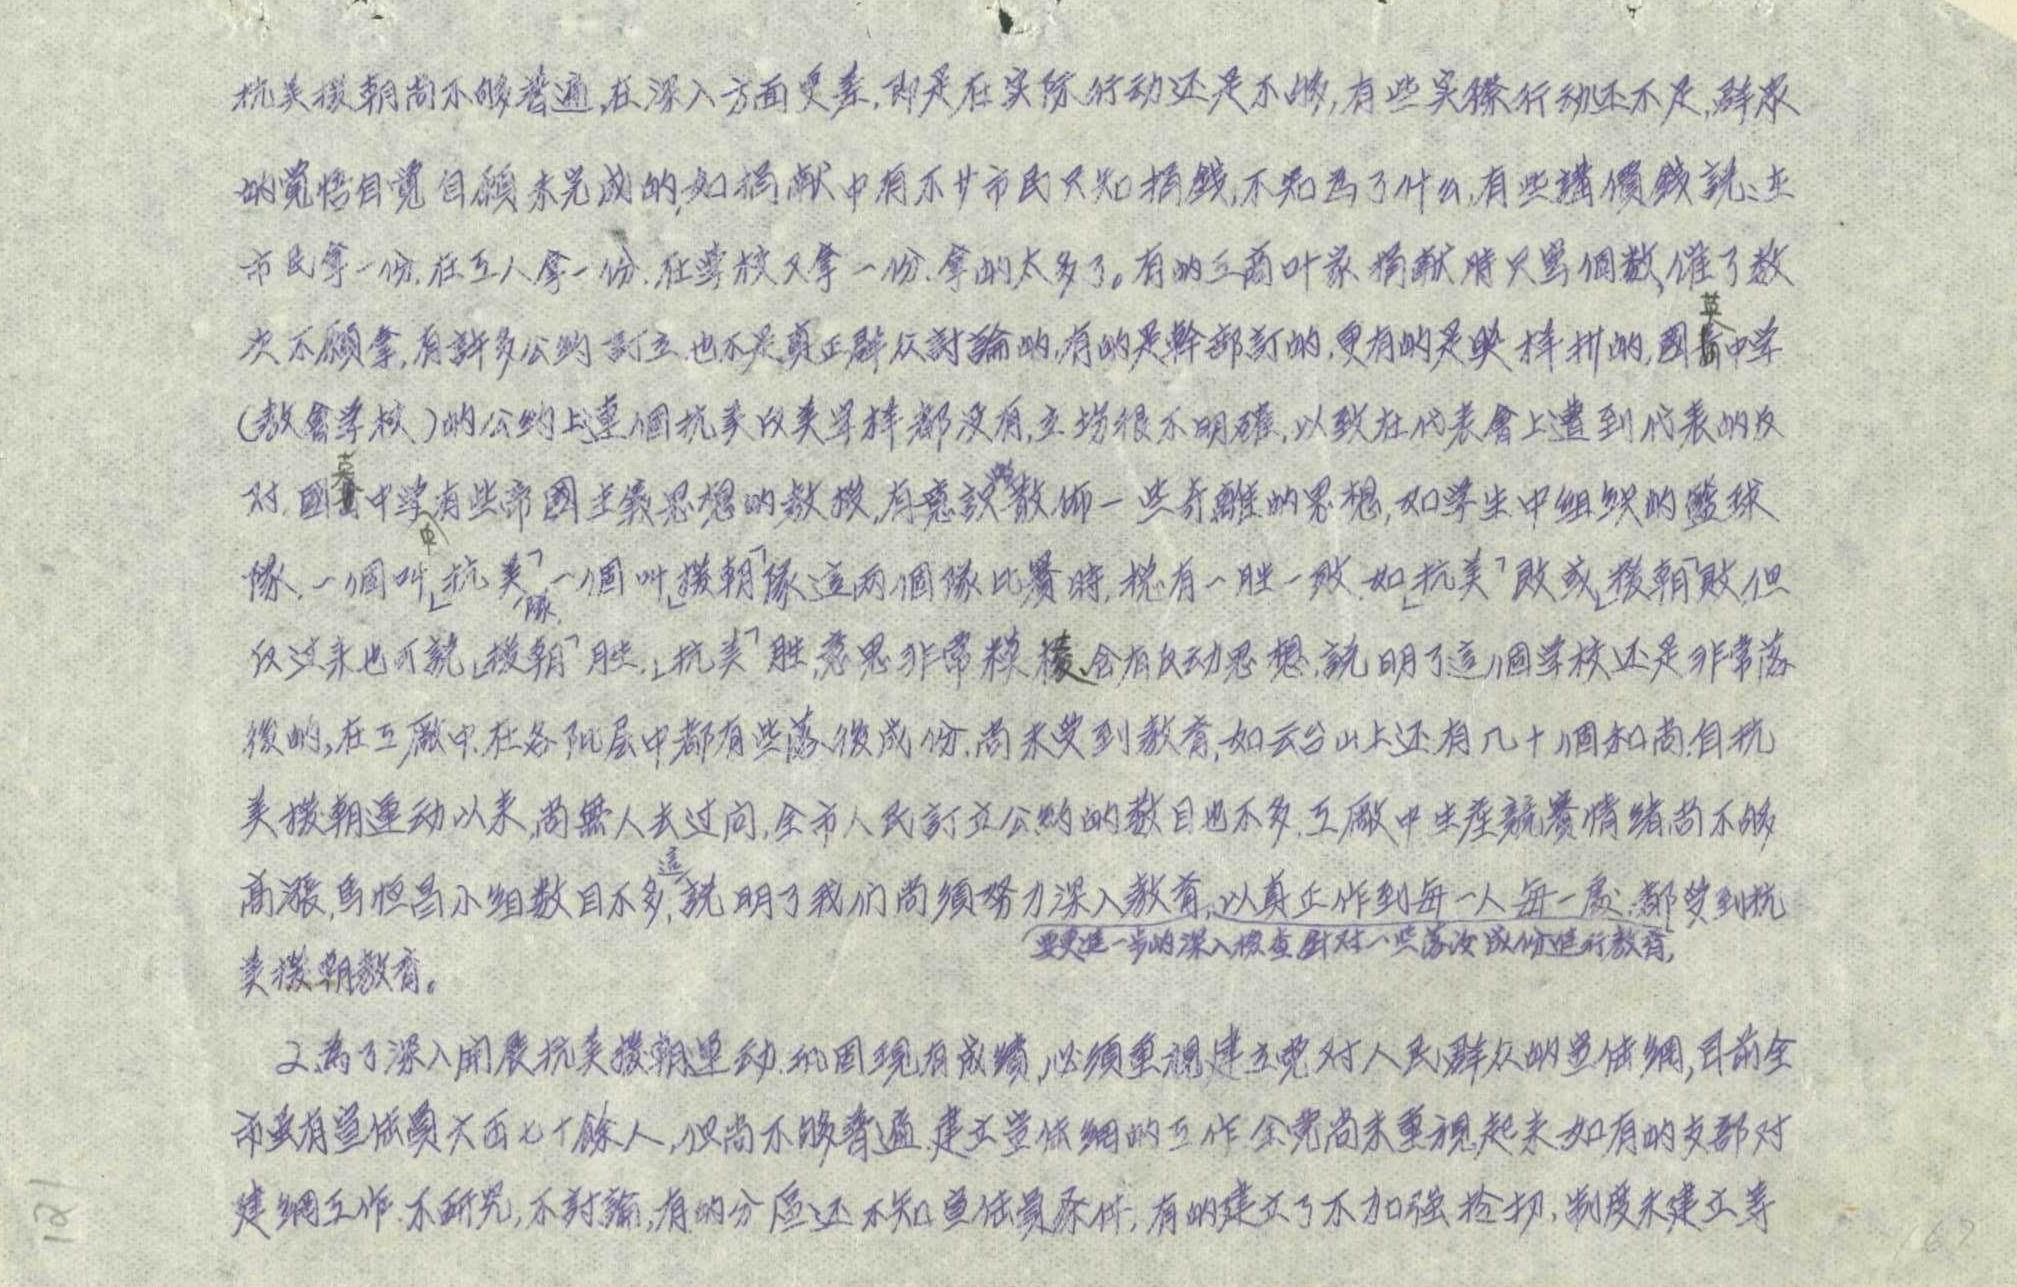 抗美援朝尚不够普遍,在深入方面更差,即是在实际行动还是不够,有些实际行动还不足,群众
的覚悟自覚自願未完成的,如捐献中有不少市民只知捐錢,不知為了什么,有些講價錢説:在
市民拿一份,在工人拿一份,在學校又拿一份,拿的太多了。有的工商叶家捐献時只写個数,催了数
次不願拿,有許多公約訂立也不是真正群众討論的,有的是幹部訂的,更有的是 拼的,國英中学
(教會学校)的公約上連個抗美反美字样都没有,立場很不明確,以致在代表會上遭到代表的反
对,國英中学内有些帝國主義思想的教授,有意識的散佈一些奇離的思想,如学生中組织的籃球
隊,一個叫「抗美」隊,一個叫「援朝」隊這两個隊比賽時,总有一胜一敗,如「抗美」敗或「援朝」敗,但
反过来也可説「援朝」胜,「抗美」胜,意思非常模棱,含有反动思想,説明了這個学校还是非常落
後的,在工廠中在各阶层中都有些落後成份,尚未受到教育,如云台山上还有几十個和尚,自抗
美援朝運动以来,尚無人去过问,全市人民訂立公約的数目也不多,工廠中生産競賽情绪尚不够
高漲,馬恒昌小组数目不多,這説明了我们尚須努力深入教育,以真正作到每一人每一處,都受到抗
要更進一步的深入檢查針对一些落後成份進行教育,
美援朝教育。
2.為了深入開展抗美援朝運动,巩固現有成績,必須重視建立党对人民群众的宣传網,目前全
市虽有宣传員六百七十餘人,但尚不够普遍,建立宣传網的工作全党尚未重視起来,如有的支部对
建網工作不研究,不討論,有的分區还不知宣传員条件,有的建立了不加強,制度未建立等
121
167